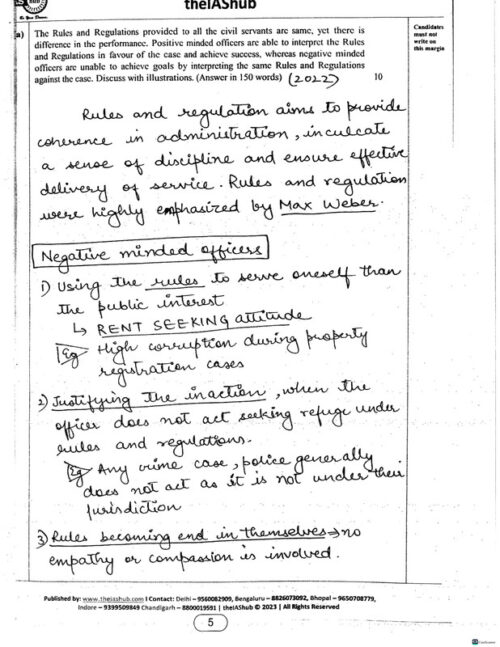 theIAShub
Candidates
must not
write on
this margin
a) The Rules and Regulations provided to all the civil servants are same, yet there is
difference in the performance. Positive minded officers are able to interpret the Rules
and Regulations in favour of the case and achieve success, whereas negative minded
officers are unable to achieve goals by interpreting the same Rules and Regulations
against the case. Discuss with illustrations. (Answer in 150 words) (2022) 10
Rules and regulation aims to provide
coherence in administration, inculcate
a sense of discipline and ensure effective
delivery of service. Rules and regulation
were highly emphasized by Max Weber.
Negative minded officers
1) Using the rules to serve oneself than
the public interest
↳ RENT SEEKING attitude
Eg High corruption during property
registration cases
2) Justifying the inaction, when the
officer does not act seeking refuge under
rules and regulations.
Eg Any crime case, police generally
does not act as it is not under their
jurisdiction
3) Rules becoming end in themselves → no
empathy or compassion is involved.
Published by: www.theiashub.com I Contact: Delhi – 9560082909, Bengaluru – 8826073092, Bhopal – 9650708779,
Indore – 9399509849 Chandigarh – 8800019591 | theIAShub © 2023 | All Rights Reserved
5